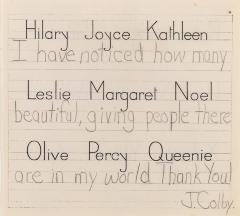 Hilary Joyce Kathleen
I have noticed how many
Leslie Margaret Noel
beautiful, giving people there
Olive Percy Queenie
are in my world Thank You!
J. Colby.